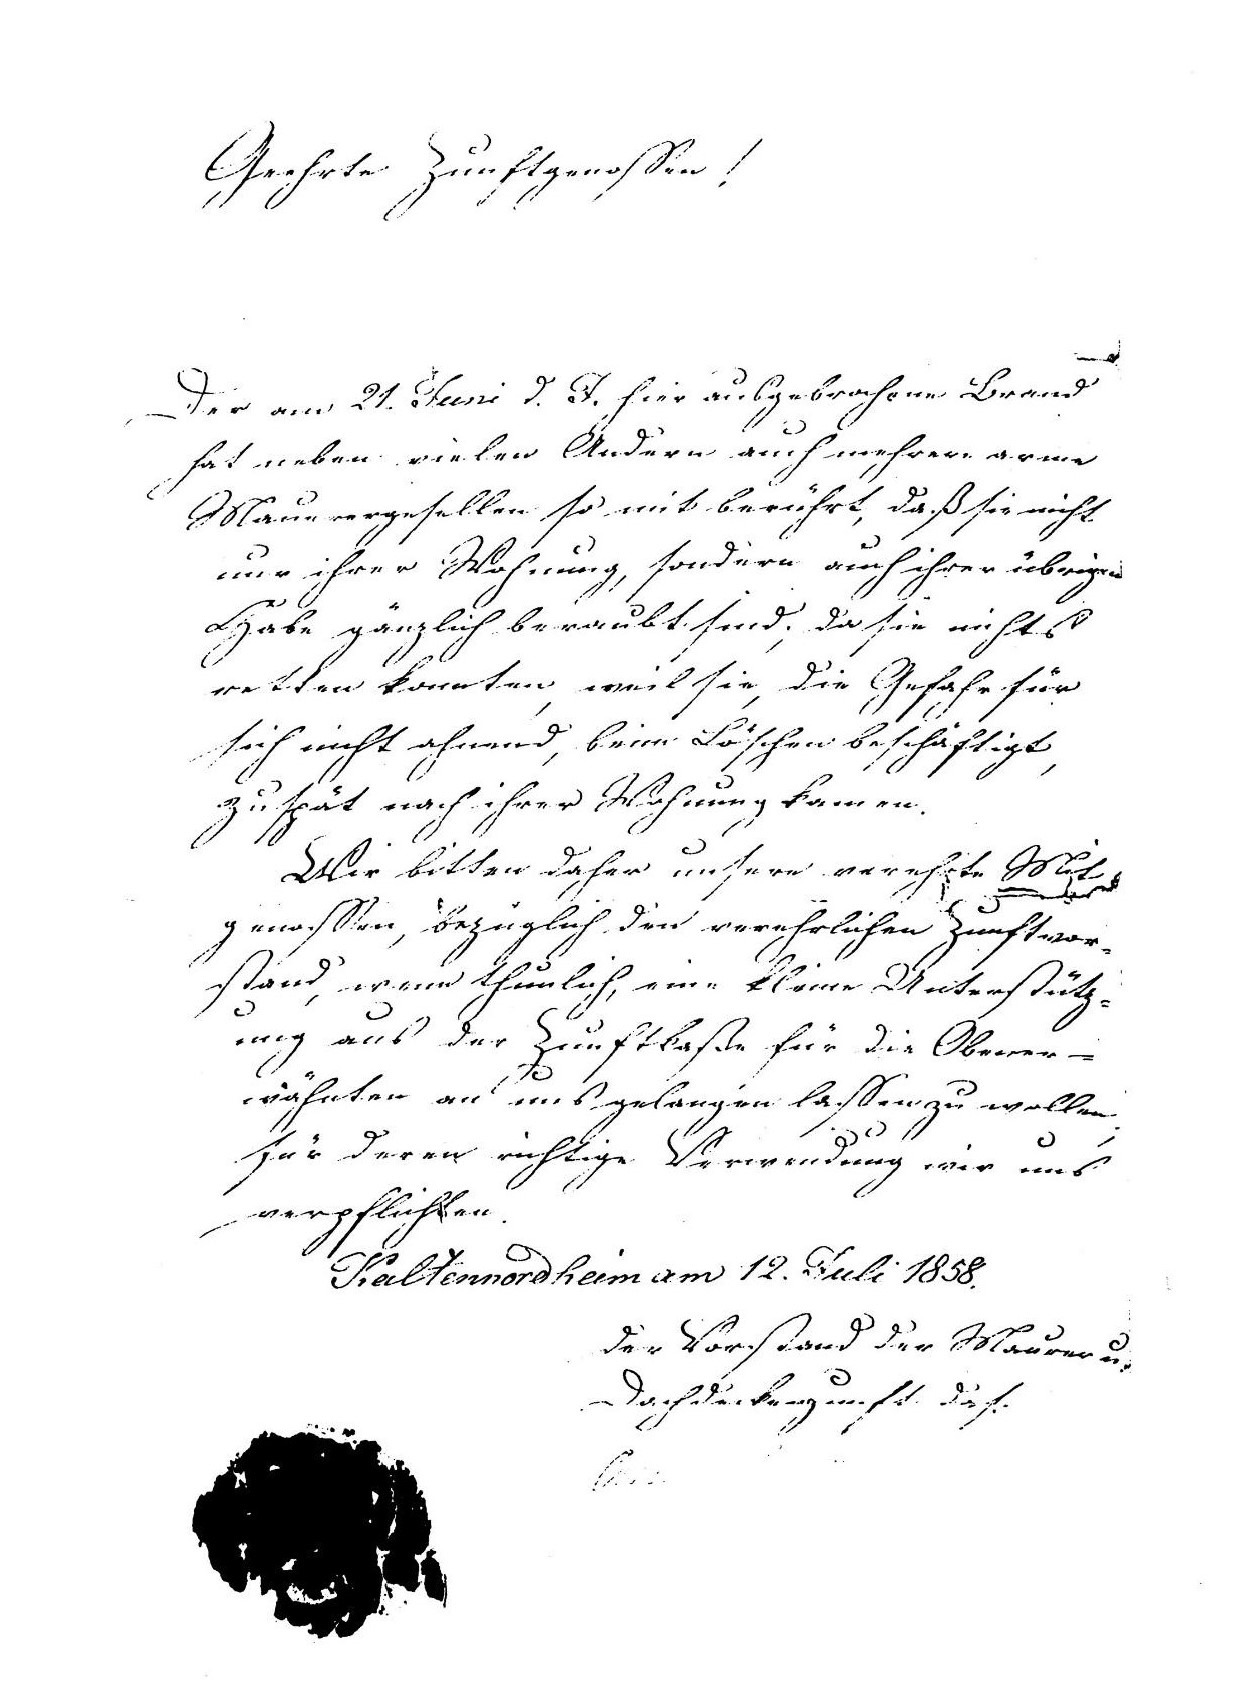 Geehrte Zunftgenossen!
Der am 21. Juni d. J. hier ausgebrochene Brand
hat neben vielen Andern auch mehrere arme
Maurergesellen so mit berührt, daß sie nicht
nur ihrer Wohnung, sondern auch ihrer übrigen
Habe gänzlich beraubt sind, da sie nichts
retten konnten, weil sie, die Gefahr für
sich nicht ahnend, beim Löschen beschäftigt,
zu spät nach ihrer Wohnung kamen.
Wir bitten daher unsere verehrte Mit
genossen, bezüglich den verehrlichen Zunftvor-
stand, wenn thunlich, eine kleine Unterstütz-
ung aus der Zunftkaße für die Obener-
wähnten an uns gelangen lassen zu wollen,
für deren richtige Verwendung wir uns
verpflichten.
Kaltennordheim am 12. Juli 1858.
der Vorstand der Maurer u.
Dachdeckerzunft das.